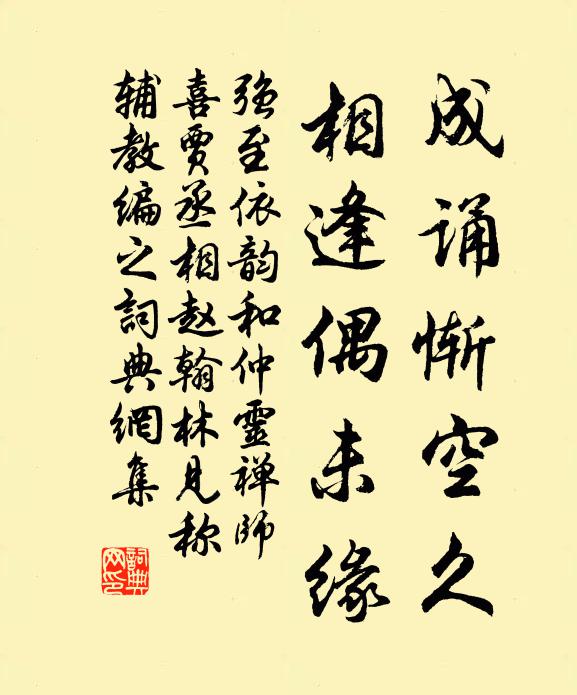 成诵惭空久
相逢偶未缘
强至依韵和仲靈禅师
喜贾丞相赵翰林見称
辅教编之詞典網集
詞典网印